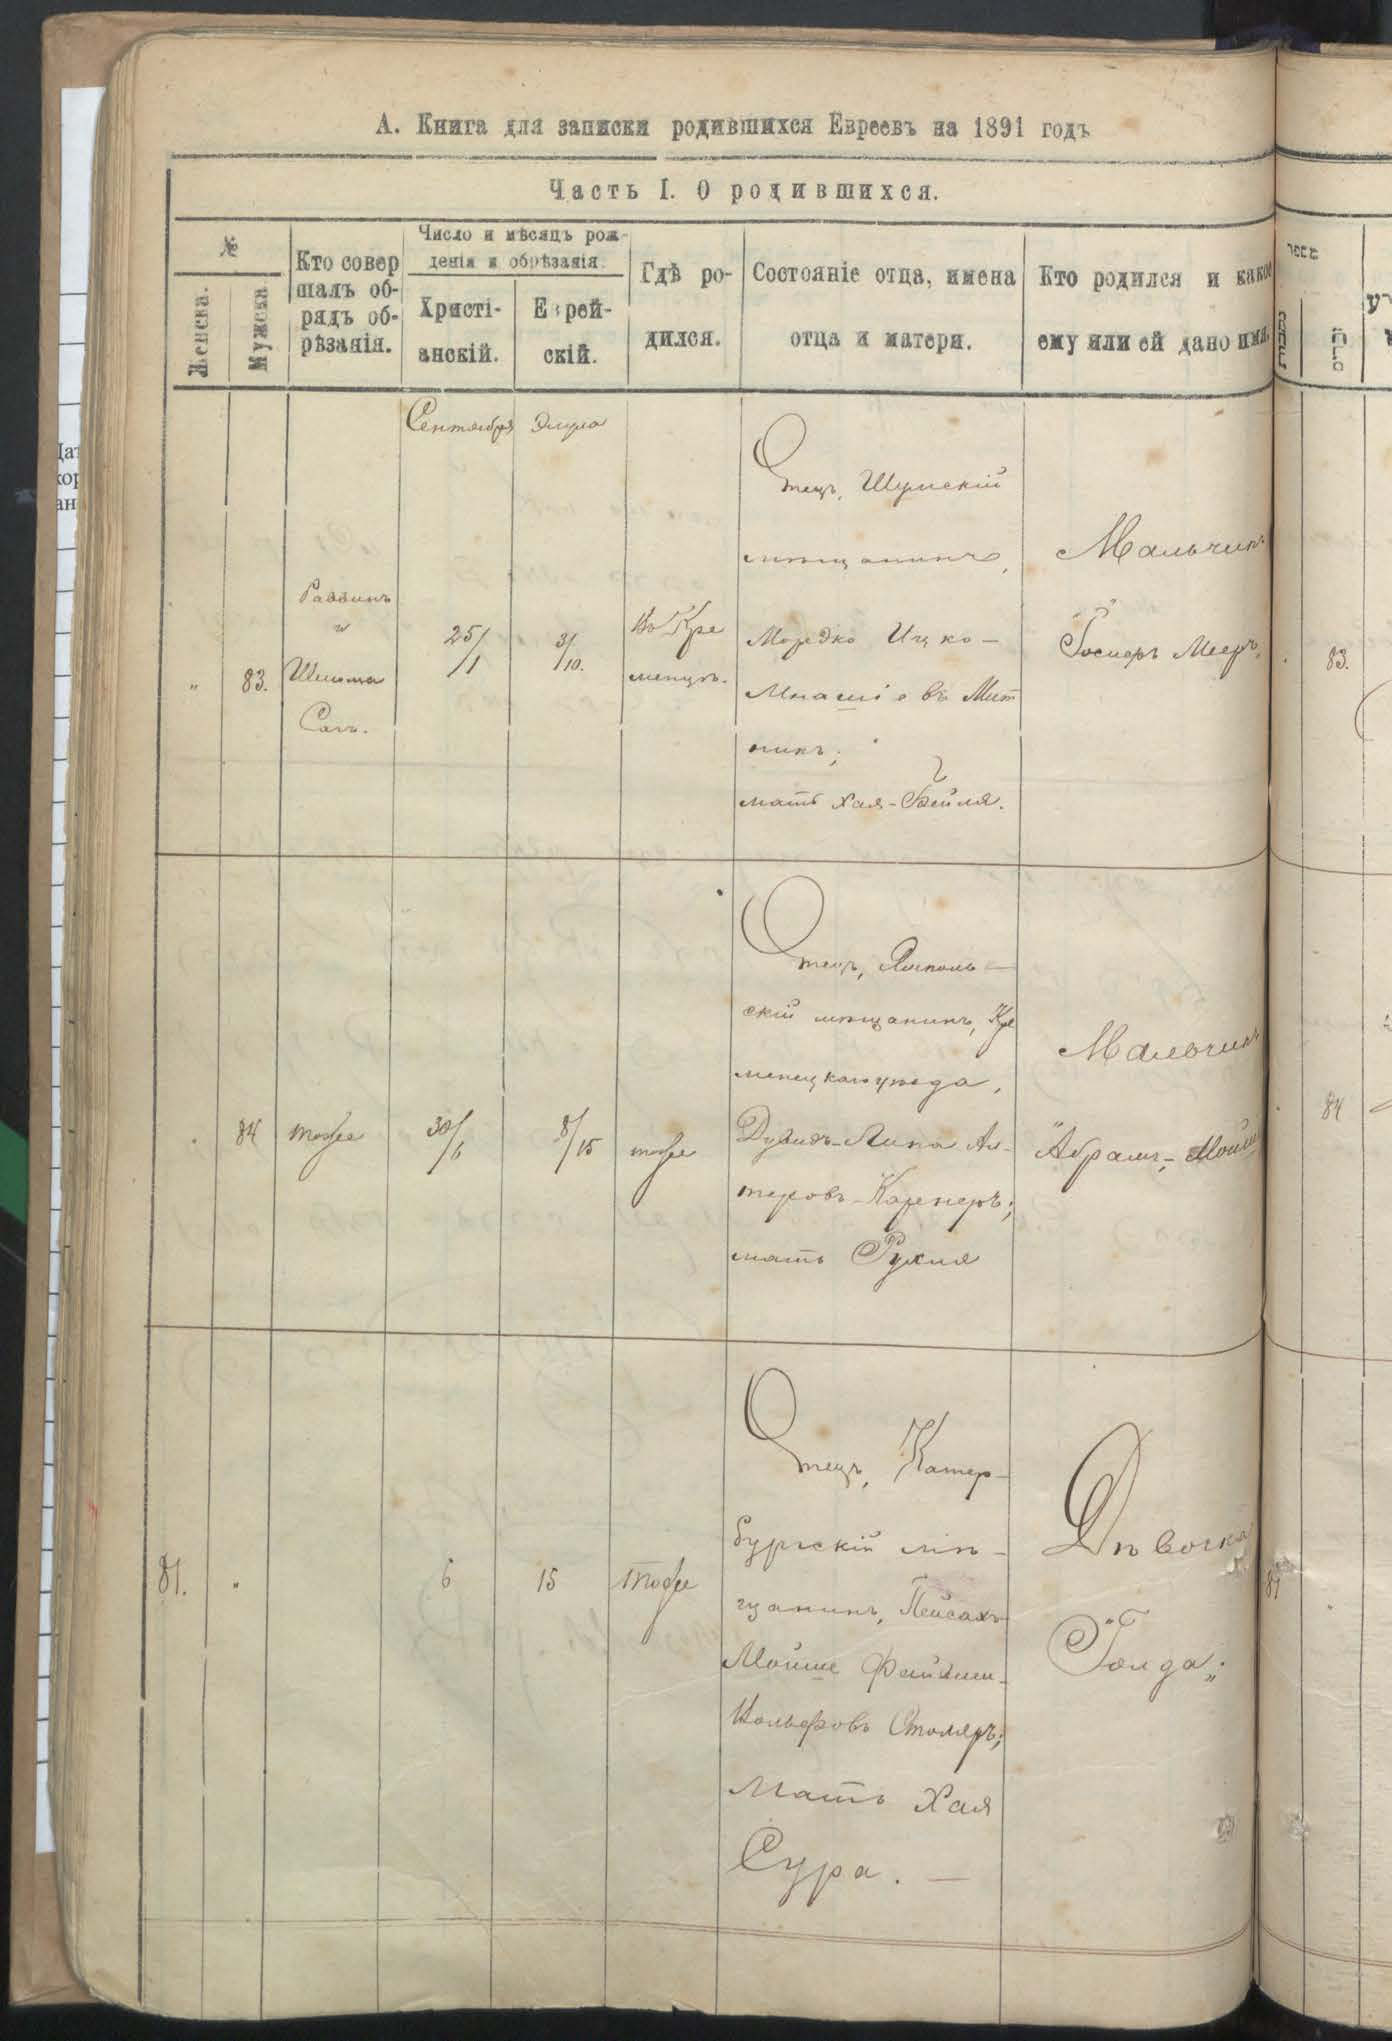 А. Книга для записки родившихся Евреевъ на 1891 годъ
Часть I. О родившихся.
№
Женска.
Мужска
Кто совер
шалъ об-
рядъ об-
рѣзанія.
Число и мѣсяцъ рож-
денія и обрѣзанія.
Христі-
анскій.
Еврей-
скій.
Гдѣ ро-
дился.
Состояніе отца, имена
отца и матери.
Кто родился и какое
ему или ей дано имя.
Сентября
Элула
„
83.
Раввинъ
и
Шлиома
Сагъ.
25/1
3/10.
Въ Кре
менцѣ.
Отецъ, Шумскій
мѣщанинъ,
Мордко Ицко-
Мнашіевъ Мит
никъ;
мать Хая-Бейля.
Мальчикъ
83.
84
тоже
30/6
8/15
тоже
Отецъ, Ямполь-
скій мѣщанинъ, Кре
менецкаго уѣзда,
Дувидъ-Липа Ал-
теровъ-Карнеръ;
мать Рухля
Мальчикъ
"Абрамъ-Мойше
84
81.
6
15
тоже
Отецъ, Катер-
бургскій мѣ-
щанинъ, Пейсахъ
Мойше Файвиш-
Вольфовъ Столяръ;
Мать Хая
Сура. —
Дѣвочка
"Голда„.
81